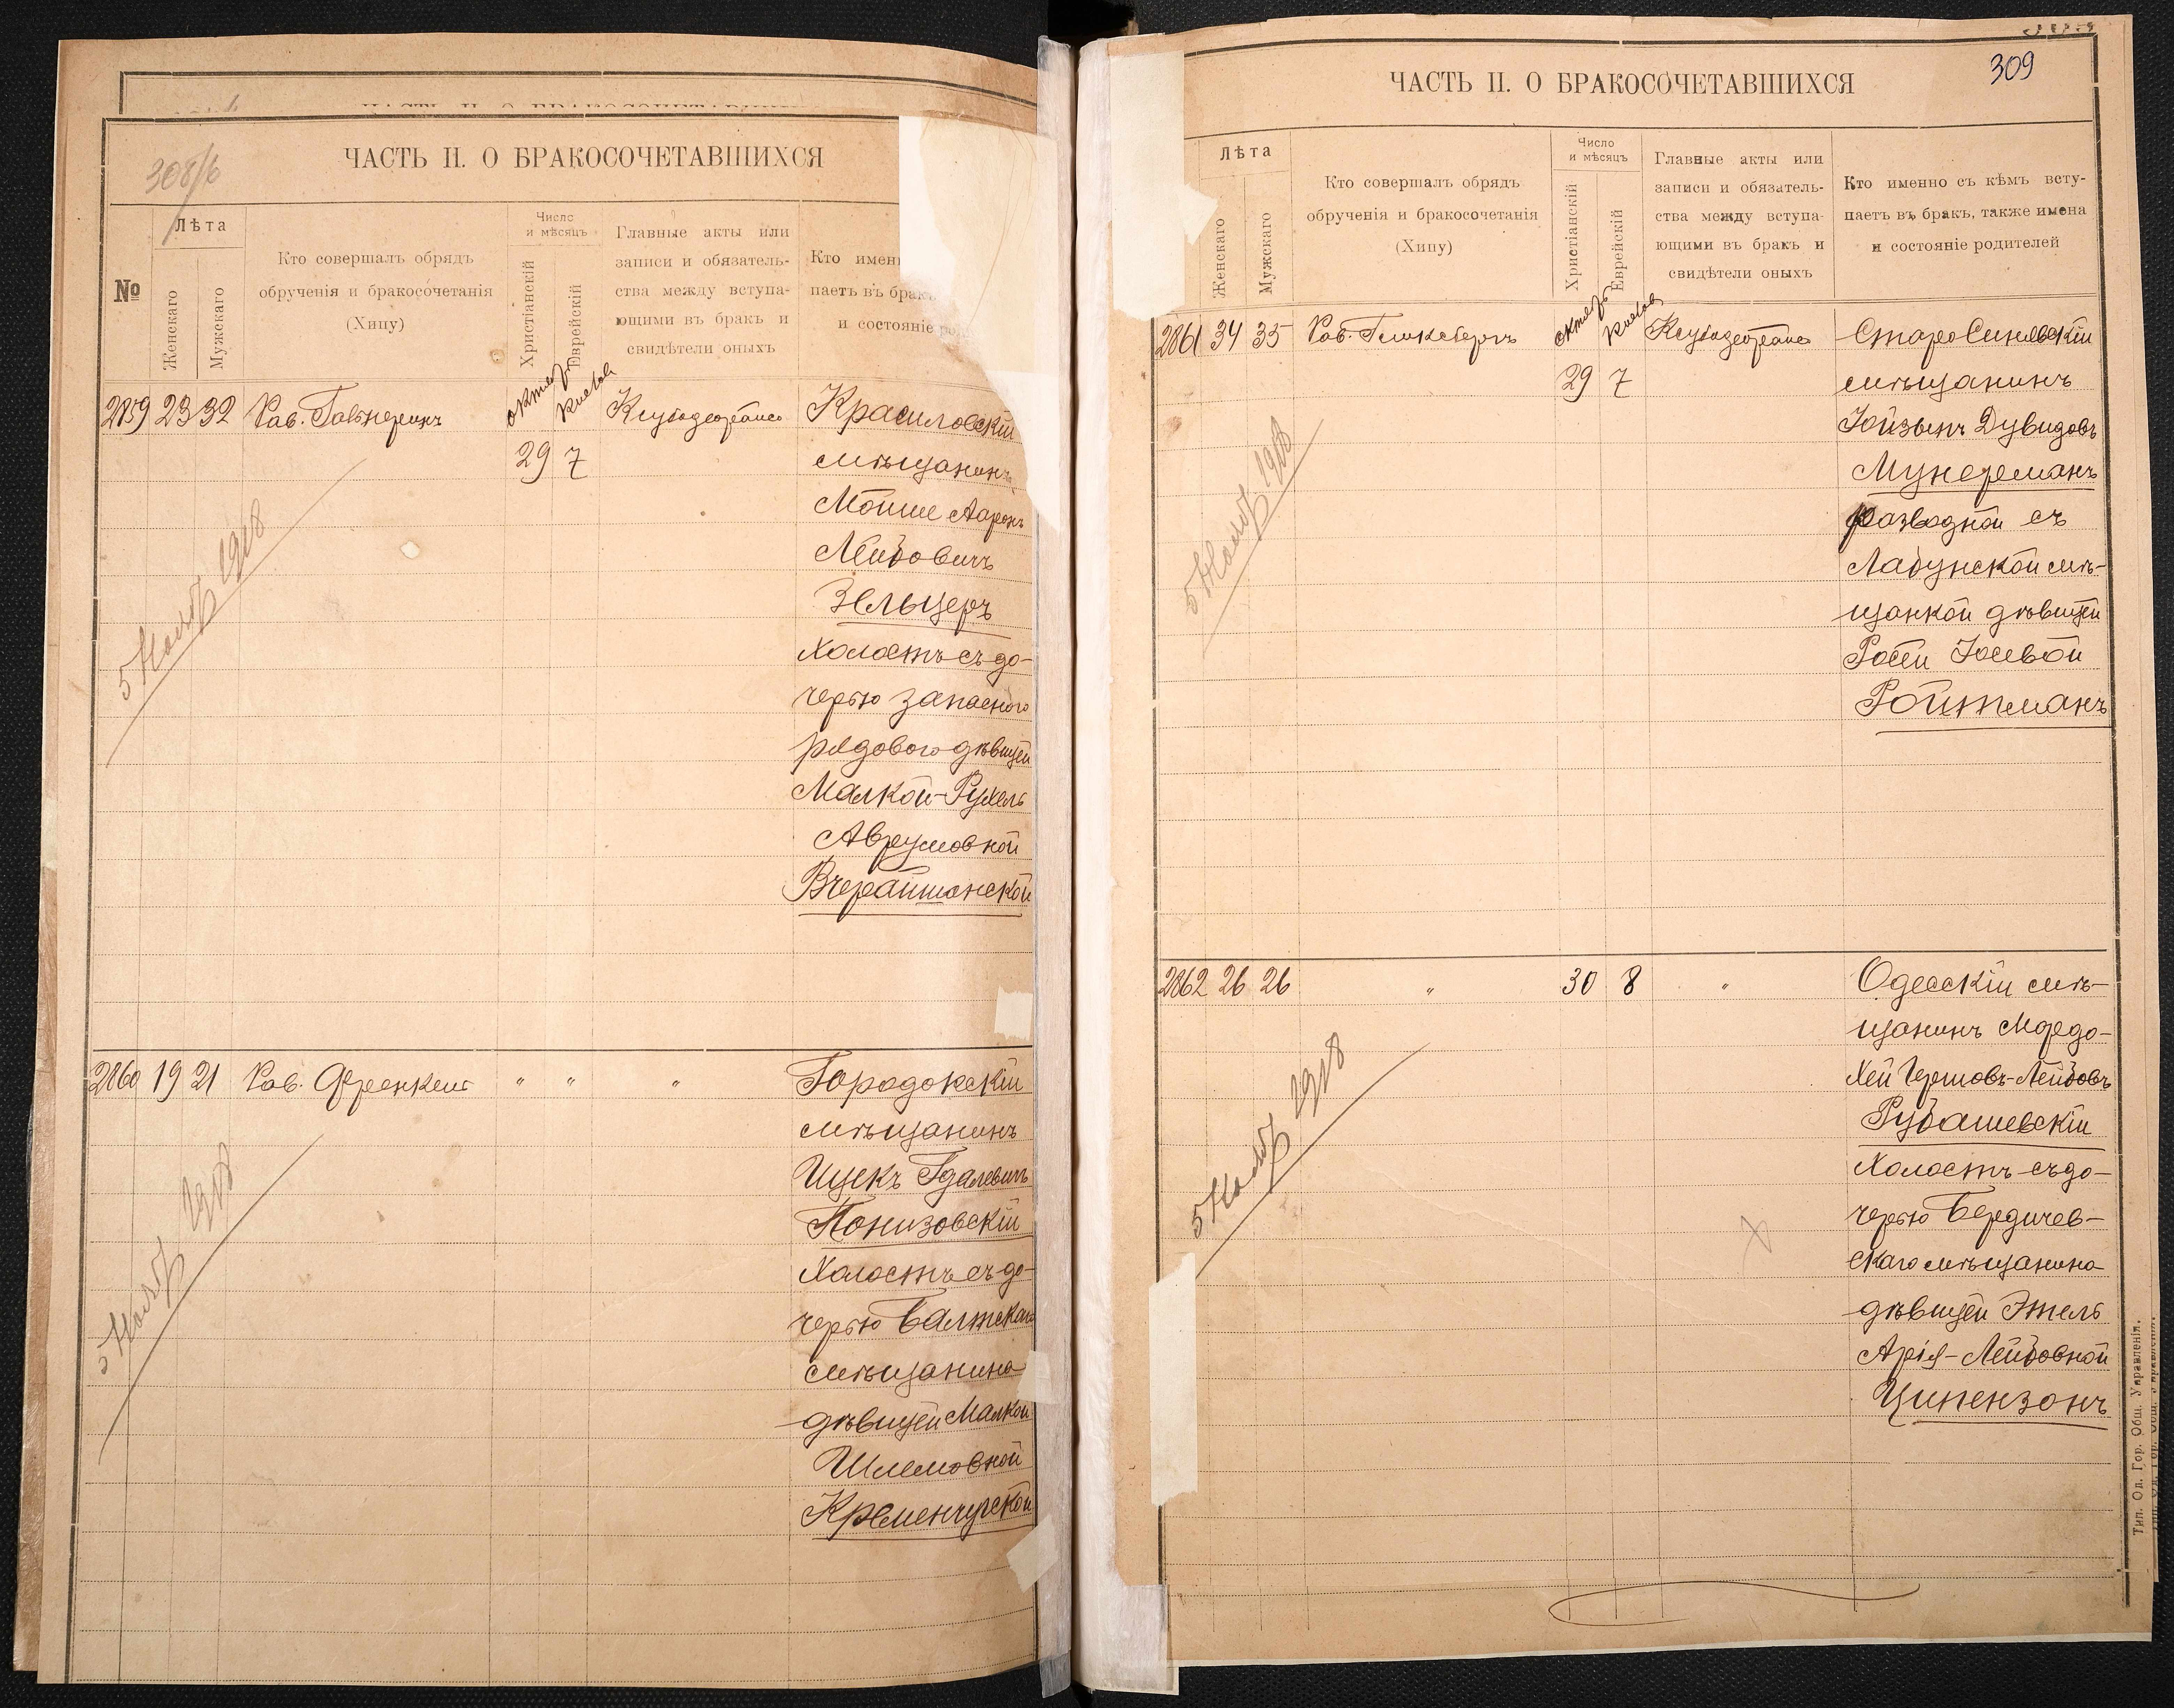 ЧАСТЬ II. О БРАКОСОЧЕТАВШИХСЯ
308/б
№
Лѣта
Женскаго
Мужскаго
Кто совершалъ обрядъ
обрученія и бракосочетанія
(Хипу)
Число
и мѣсяцъ
Христіанскій
Еврейскій
Главные акты или
записи и обязатель-
ства между вступа-
ющими въ бракъ и
свидѣтели оныхъ
Кто именн
паетъ въ брак
и состояніе род
2859 23 32 Рав.
29 7
Красиловскій
мѣщанинъ
Мойше Ааронъ
Лейбовичъ
Зельцеръ
холостъ съ до-
черью запасного
рядового дѣвицей
Малкой-Рухель
Аврумовной
Вчерайшанской
5 Нояб 1918
2860 19 21 Рав. Френкель " " "
Городокскій
мѣщанинъ
Ицекъ Гдалевичъ
Понизовскій
холостъ съ до-
черью Балтскаго
мѣщанина
дѣвицей Малкой
Шлемовной
Кременчугской
5 Нояб 1918
309
ЧАСТЬ II. О БРАКОСОЧЕТАВШИХСЯ
Лѣта
Женскаго
Мужскаго
Кто совершалъ обрядъ
обрученія и бракосочетанія
(Хипу)
Число
и мѣсяцъ
Христіанскій
Еврейскій
Главные акты или
записи и обязатель-
ства между вступа-
ющими въ бракъ и
свидѣтели оныхъ
Кто именно съ кѣмъ всту-
паетъ въ бракъ, также имена
и состояніе родителей
2861 34 35 Рав. Гликсбергъ
29 7
СтароСинявскій
мѣщанинъ
Іойзынъ Дувидовъ
Мунерманъ
разводной съ
Лабунской мѣ-
щанкой дѣвицей
Росей Іосевой
Ройтманъ
5 Нояб 1918
2862 26 26 " 30 8 "
Одесскій мѣ-
щанинъ Мордо-
хей Гершовъ-Лейбовъ
Рубашевскій
холостъ съ до-
черью Бердичев-
скаго мѣщанина
дѣвицей Этель
Арія-Лейбовной
Ципензонъ
5 Нояб 1918
Тип. Од. Гор. Общ. Управленія.